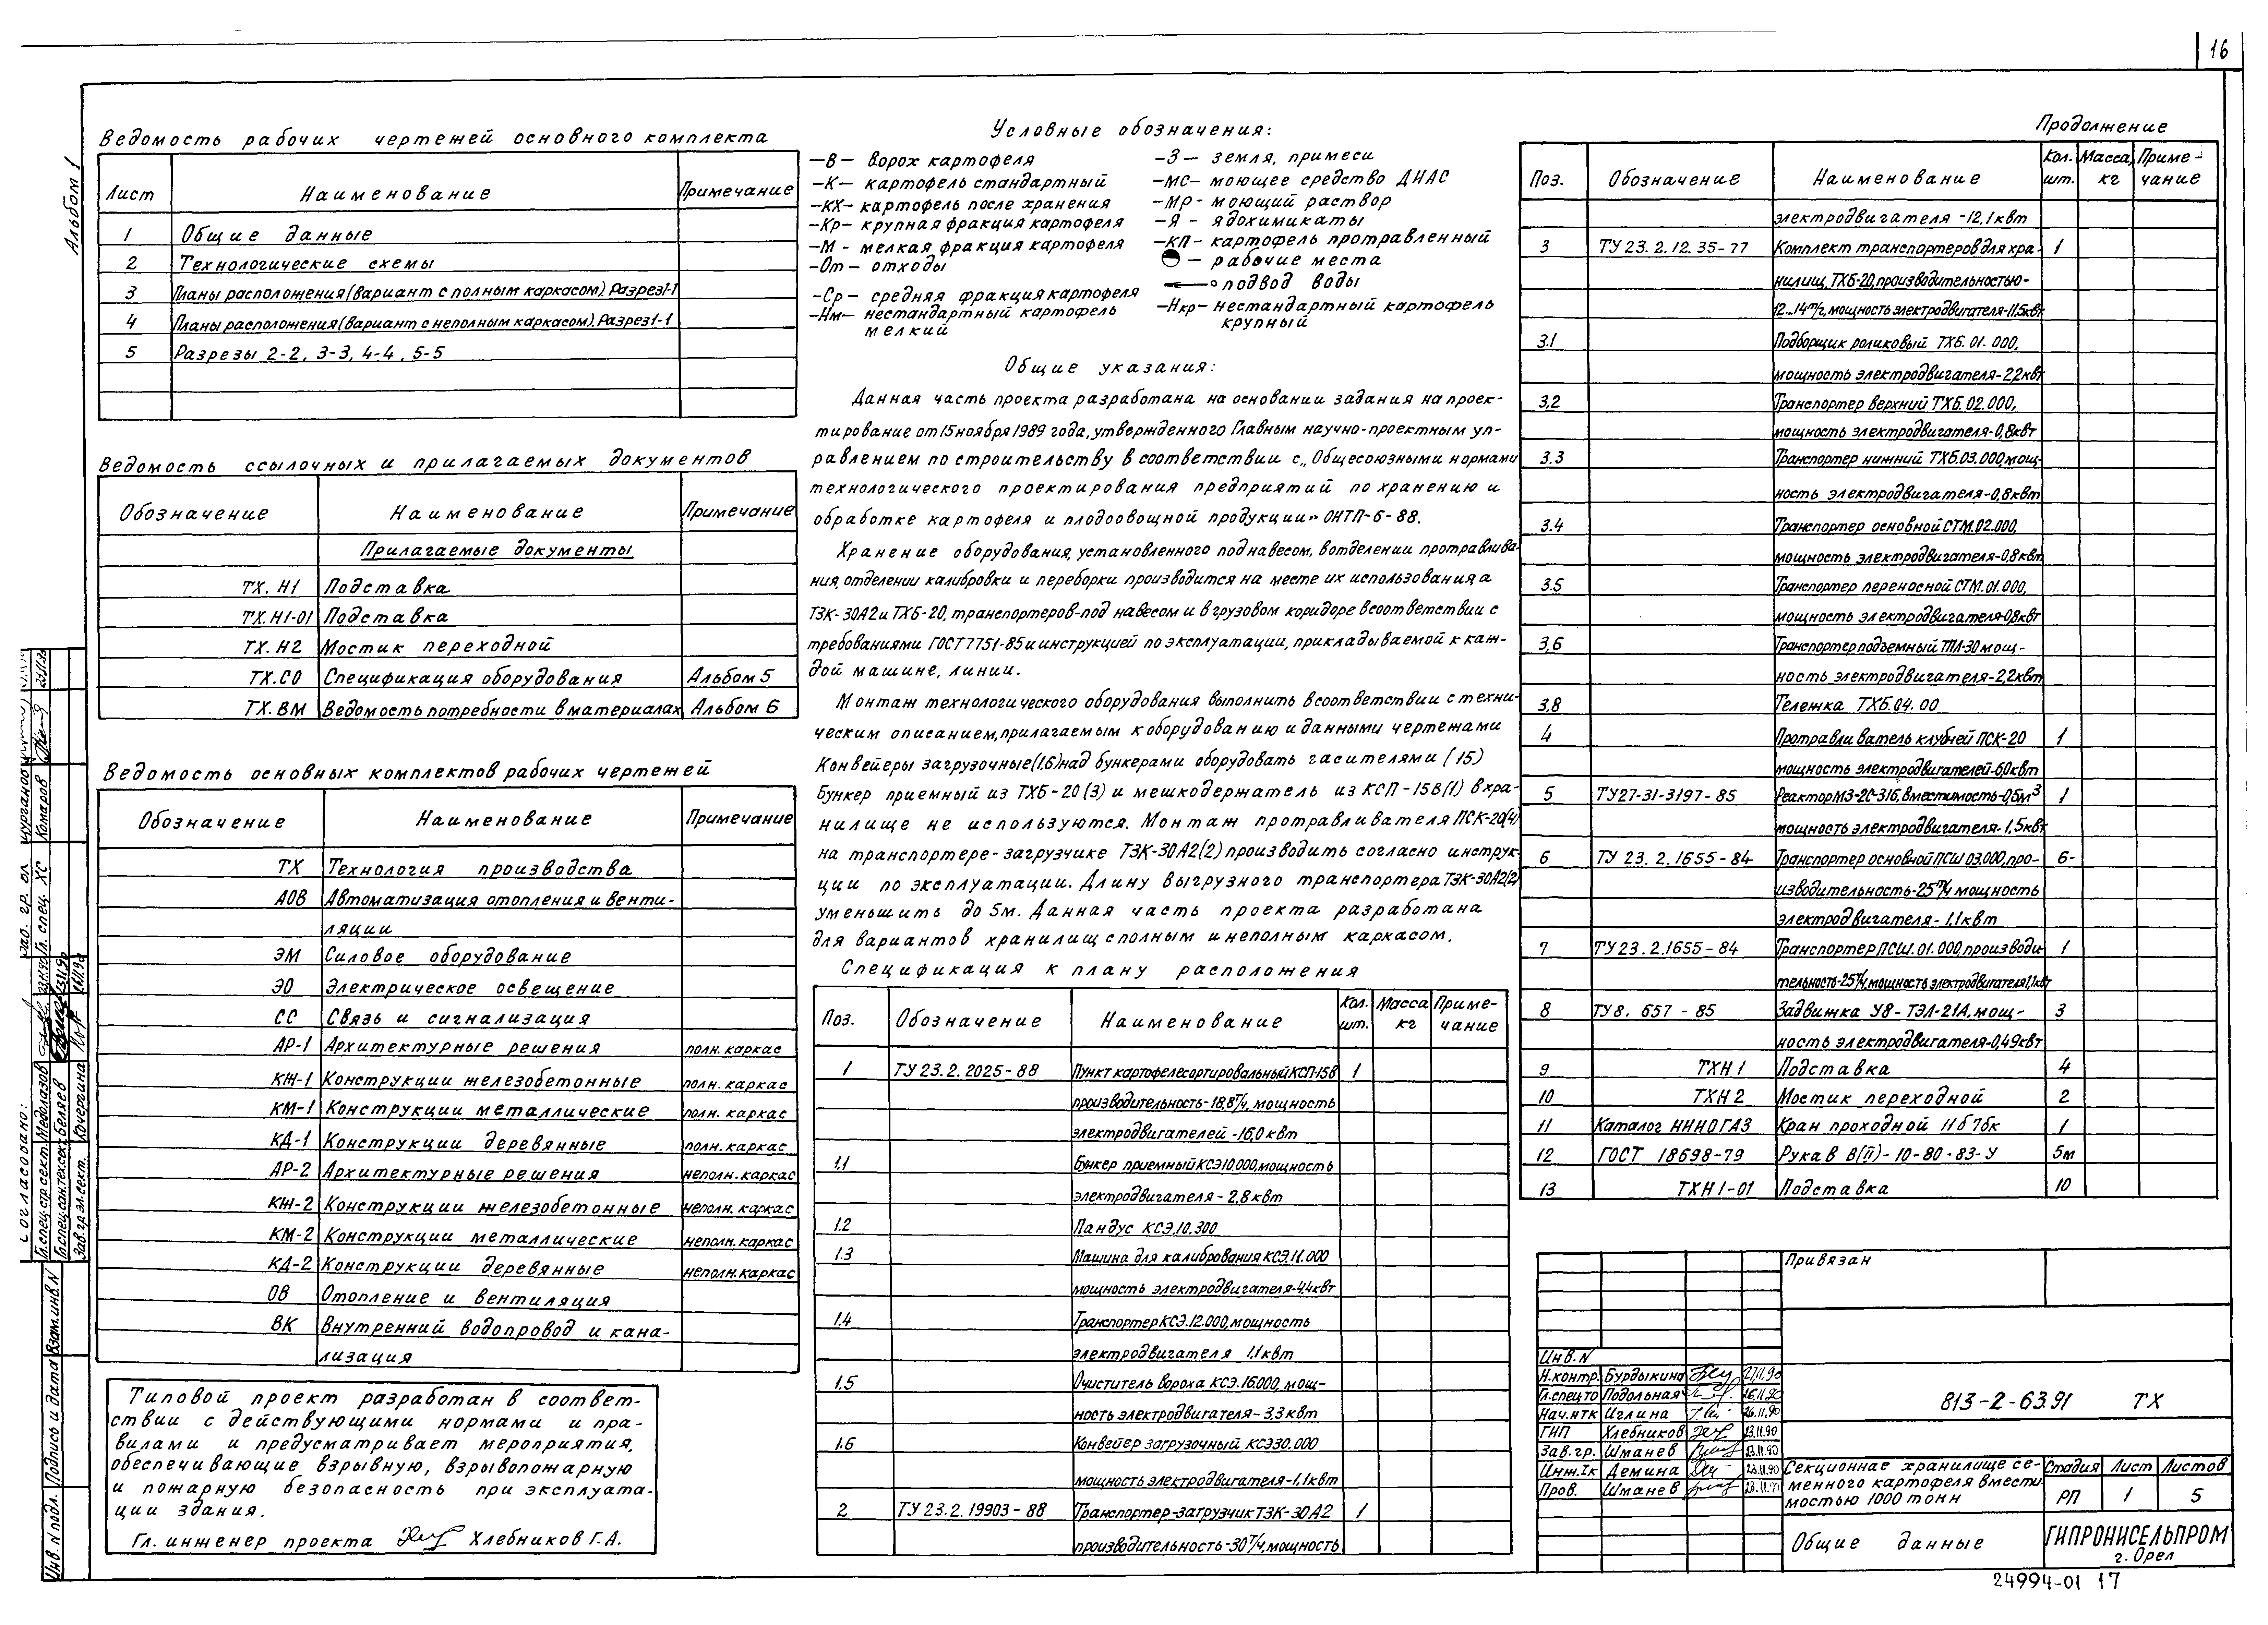 16
Альбом 1
Ведомость рабочих чертежей основного комплекта
Лист Наименование Примечание
1 Общие данные
2 Технологические схемы
3 Планы расположения (вариант с полным каркасом). Разрез 1-1
4 Планы расположения (вариант с неполным каркасом). Разрез 1-1
5 Разрезы 2-2, 3-3, 4-4, 5-5
Ведомость ссылочных и прилагаемых документов
Обозначение Наименование Примечание
Прилагаемые документы
ТХ.Н1 Подставка
ТХ.Н1-01 Подставка
ТХ.Н2 Мостик переходной
ТХ.СО Спецификация оборудования Альбом 5
ТХ.ВМ Ведомость потребности в материалах Альбом 6
Ведомость основных комплектов рабочих чертежей
Обозначение Наименование Примечание
ТХ Технология производства
АОВ Автоматизация отопления и венти-
ляции
ЭМ Силовое оборудование
ЭО Электрическое освещение
СС Связь и сигнализация
АР-1 Архитектурные решения полн. каркас
КЖ-1 Конструкции железобетонные полн. каркас
КМ-1 Конструкции металлические полн. каркас
КД-1 Конструкции деревянные полн. каркас
АР-2 Архитектурные решения неполн. каркас
КЖ-2 Конструкции железобетонные неполн. каркас
КМ-2 Конструкции металлические неполн. каркас
КД-2 Конструкции деревянные неполн. каркас
ОВ Отопление и вентиляция
ВК Внутренний водопровод и кана-
лизация
Типовой проект разработан в соответ-
ствии с действующими нормами и пра-
вилами и предусматривает мероприятия,
обеспечивающие взрывную, взрывопожарную
и пожарную безопасность при эксплуата-
ции здания.
Гл. инженер проекта Хлебников Г.А.
Условные обозначения:
—В— ворох картофеля
—К— картофель стандартный
—КХ— картофель после хранения
—Кр— крупная фракция картофеля
—М— мелкая фракция картофеля
—От— отходы
—Ср— средняя фракция картофеля
—Нм— нестандартный картофель
мелкий
—З— земля, примеси
—МС— моющее средство ДИАС
—Мр— моющий раствор
—Я— ядохимикаты
—КП— картофель протравленный
— рабочие места
подвод воды
—Нкр— нестандартный картофель
крупный
Общие указания:
Данная часть проекта разработана на основании задания на проек-
тирование от 15 ноября 1989 года, утвержденного Главным научно-проектным уп-
равлением по строительству в соответствии с „Общесоюзными нормами
технологического проектирования предприятий по хранению и
обработке картофеля и плодоовощной продукции" ОНТП-6-88.
Хранение оборудования, установленного под навесом, в отделении протравлива-
ния, отделении калибровки и переборки производится на месте их использования, а
ТЗК-30А2 и ТХБ-20, транспортеров-под навесом и в грузовом коридоре в соответствии с
требованиями ГОСТ 7751-85 и инструкцией по эксплуатации, прикладываемой к каж-
дой машине, линии.
Монтаж технологического оборудования выполнить в соответствии с техни-
ческим описанием, прилагаемым к оборудованию и данными чертежами
Конвейеры загрузочные (1.6) над бункерами оборудовать гасителями (15)
Бункер приемный из ТХБ-20 (3) и мешкодержатель из КСП-15В (1) в хра-
нилище не используются. Монтаж протравливателя ПСК-20(4)
на транспортере-загрузчике ТЗК-30А2(2) производить согласно инструк-
ции по эксплуатации. Длину выгрузного транспортера ТЗК-30А2(2)
уменьшить до 5м. Данная часть проекта разработана
для вариантов хранилищ с полным и неполным каркасом.
Спецификация к плану расположения
Поз. Обозначение Наименование Кол. шт. Масса кг Приме-чание
1 ТУ 23.2.2025-88 Пункт картофелесортировальный КСП-15В 1
производительность-18,8 т/ч, мощность
электродвигателей -16,0 квт
1.1 Бункер приемный КСЭ.10.000, мощность
электродвигателя - 2,8 квт
1.2 Пандус КСЭ.10.300
1.3 Машина для калибрования КСЭ.11.000
мощность электродвигателя-4,4квт
1.4 Транспортер КСЭ.12.000, мощность
электродвигателя 1,1 квт
1.5 Очиститель вороха КСЭ.16.000, мощ-
ность электродвигателя-3,3 квт
1.6 Конвейер загрузочный КСЭ30.000
мощность электродвигателя-1,1 квт
2 ТУ 23.2.19903-88 Транспортер-загрузчик ТЗК-30А2 1
производительность-30 т/ч, мощность
Продолжение
Поз. Обозначение Наименование Кол. шт. Масса, кг Приме-чание
электродвигателя -12,1 квт
3 ТУ 23.2.12.35-77 Комплект транспортеров для хра- 1
нилищ, ТХБ-20, производительностью-
12...14 т/г, мощность электродвигателя-11,5квт
3.1 Подборщик роликовый ТХБ.01.000,
мощность электродвигателя-2,2квт
3,2 Транспортер верхний ТХБ.02.000,
мощность электродвигателя-0,8квт
3.3 Транспортер нижний ТХБ.03.000, мощ-
ность электродвигателя-0,8квт
3.4 Транспортер основной СТМ.02.000,
мощность электродвигателя-0,8квт
3.5 Транспортер переносной СТМ.01.000,
мощность электродвигателя-0,8квт
3,6 Транспортер подъемный ТПЛ-30 мощ-
ность электродвигателя-2,2квт
3,8 Тележка ТХБ.04.00
4 Протравливатель клубней ПСК-20 1
мощность электродвигателей-6,0квт
5 ТУ27-31-3197-85 Реактор МЗ-2С-316, вместимость-0,5м³ 1
мощность электродвигателя-1,5квт
6 ТУ 23.2.1655-84 Транспортер основной ПСШ 03.000, про- 6-
изводительность-25 т/ч мощность
электродвигателя-1,1 квт
7 ТУ 23.2.1655-84 Транспортер ПСШ.01.000, производи- 1
тельность-25 т/ч, мощность электродвигателя 1,1квт
8 ТУ8. 657 - 85 Задвижка У8-ТЭЛ-21А, мощ- 3
ность электродвигателя-0,49квт
9 ТХН1 Подставка 4
10 ТХН2 Мостик переходной 2
11 Каталог НИИОГАЗ Кран проходной 11б7бк 1
12 ГОСТ 18698-79 Рукав В(II)-10-80-83-У 5м
13 ТХН1-01 Подставка 10
Привязан
Инв.N
Н.контр. Бурдыкина 27.11.90
Гл.спец то Подольная 26.11.90
Нач.нтк Иглина 26.11.90
ГИП Хлебников 23.11.90
Зав.гр. Шманев 23.11.90
Инж.Iк Демина 23.11.90
Пров. Шманев 23.11.90
813-2-63.91 ТХ
Секционное хранилище се-
менного картофеля вмести-
мостью 1000 тонн
Стадия Лист Листов
РП 1 5
Общие данные
ГИПРОНИСЕЛЬПРОМ
г. Орел
24994-01 17
Согласовано:
Гл.спец.стр.сект. Медолазов
Гл.спец.сан.тех.сек. Беляев
Зав.гр.эл.сект. Кочергина
Гл. спец. ХС Комаров
Инв. N подл. Подпись и дата Взам.инв.N